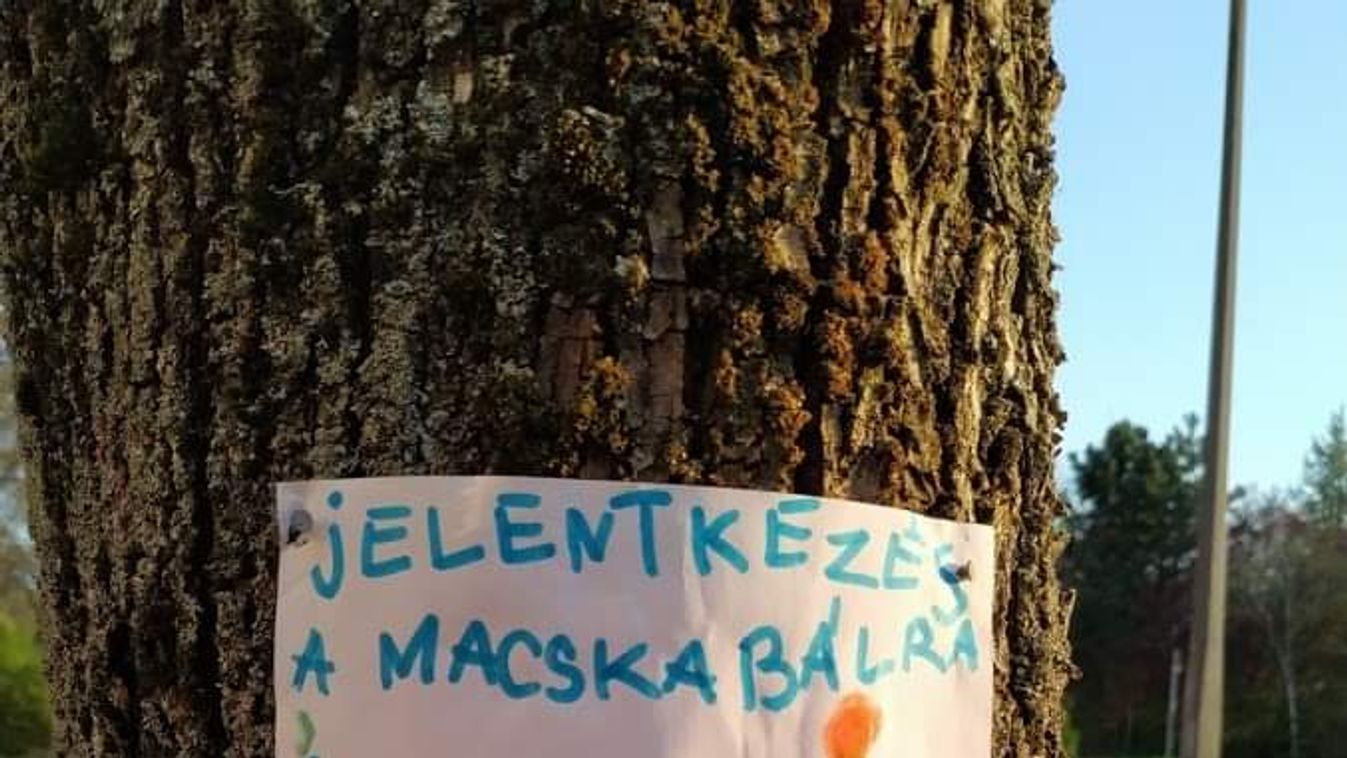 jELENTKEZÉS
A MACSKABÁLRA